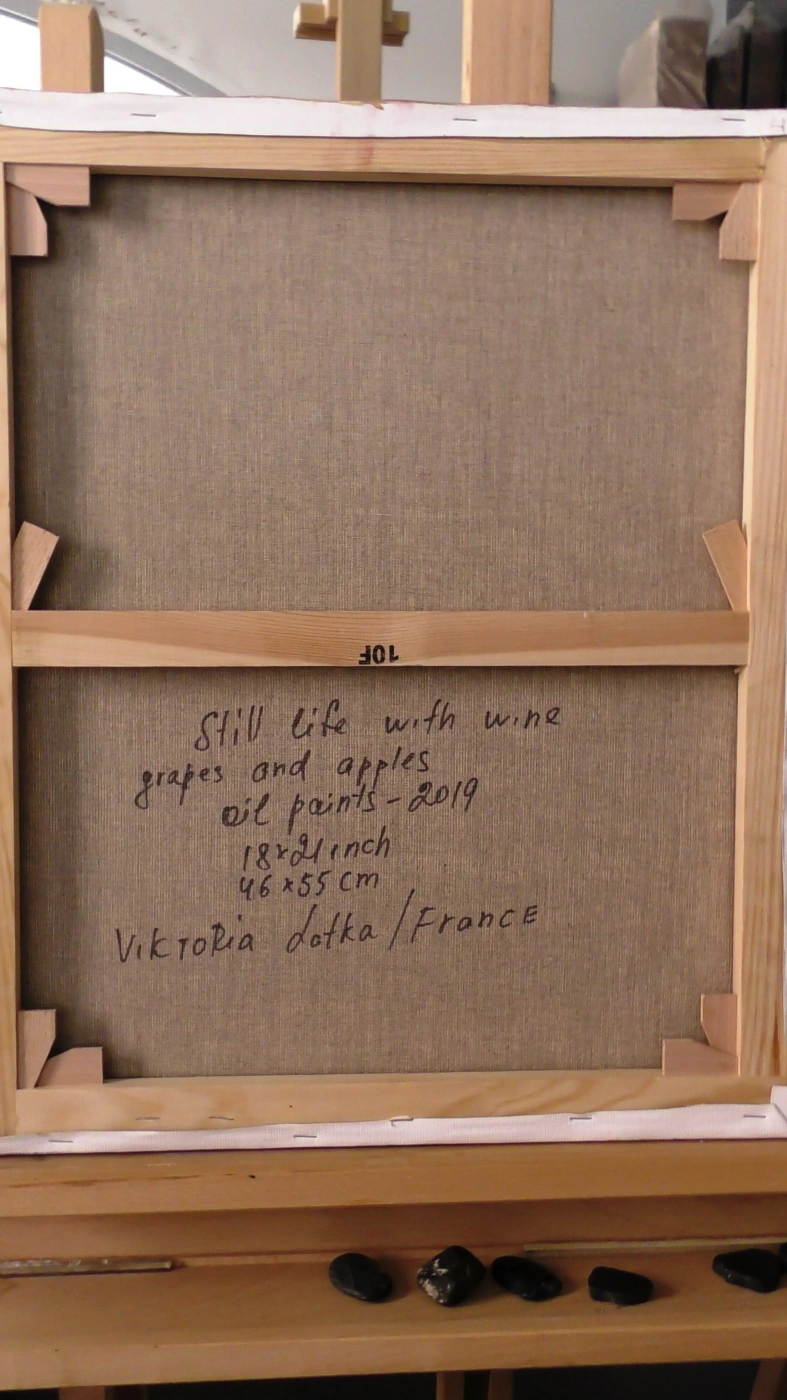 10F
Still life with wine
grapes and apples
oil paints - 2019
18x21 inch
46x55 cm
VIKTORia Lotka / FrancE